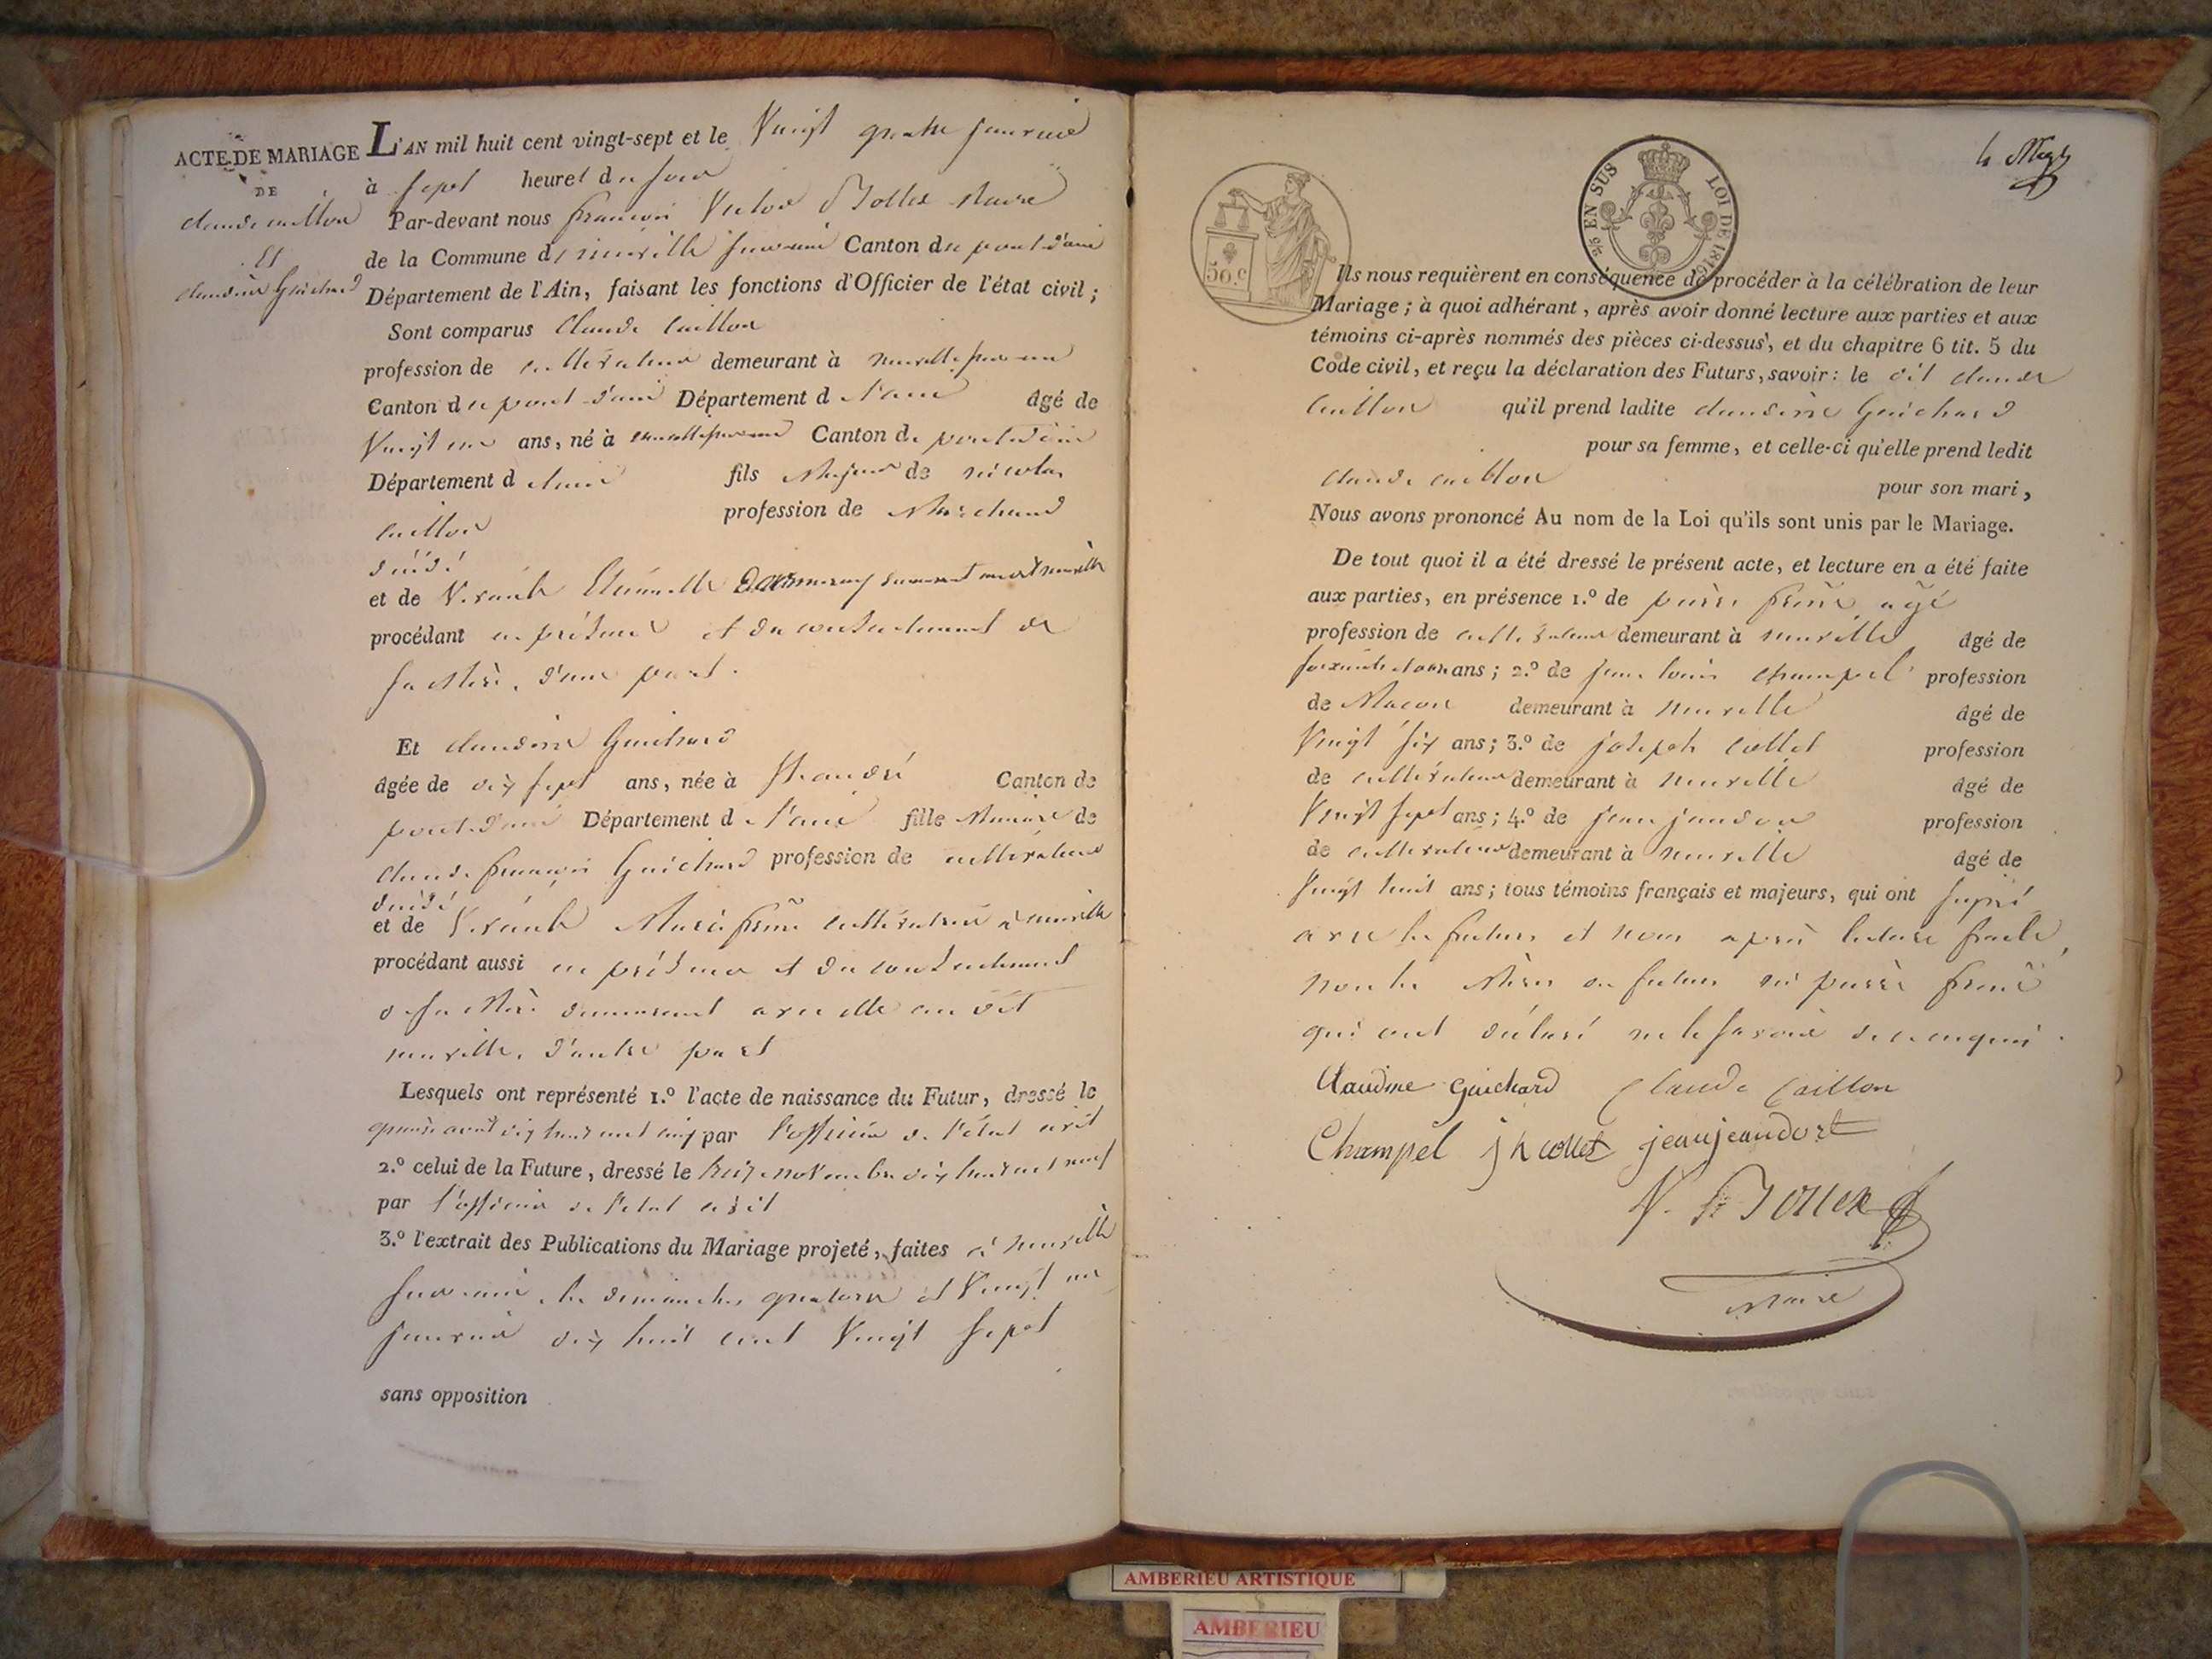 ACTE DE MARIAGE
DE
claude caillon
Et
claudine Guichard
L'AN mil huit cent vingt-sept et le Vingt quatre janvier
à sept heures du soir
Par-devant nous françois Victor Maire
de la Commune de neuville sur ain Canton du pont d'ain
Département de l'Ain, faisant les fonctions d'Officier de l'état civil ;
Sont comparus Claude Caillon
profession de cultivateur demeurant à neuville sur ain
Canton du pont d'ain Département d l'ain âgé de
Vingt un ans, né à neuville sur ain Canton de pont d'ain
Département d l'ain fils Majeur de nicolas
caillon profession de Marchand
décédé
et de Vivante Etiennette demeurant neuville
procédant en présence et du consentement de
sa Mère, d'une part.
Et claudine Guichard
âgée de dix sept ans, née à St andré Canton de
pont d'ain Département d l'ain fille Mineure de
claude françois Guichard profession de cultivateur
décédé
et de Vivante Marie cultivatrice à neuville
procédant aussi en présence et du consentement
de sa Mère demeurant avec elle au dit
neuville, d'autre part
Lesquels ont représenté 1.º l'acte de naissance du Futur, dressé le
par l'officier de l'état civil
2.º celui de la Future, dressé le novembre dix huit cent neuf
par l'officier de l'état civil
3.º l'extrait des Publications du Mariage projeté, faites à neuville
sur ain, les dimanches quatorze et Vingt un
janvier dix huit cent Vingt sept
sans opposition
50.c
EN SUS LOI DE 1816
Ils nous requièrent en conséquence de procéder à la célébration de leur
Mariage ; à quoi adhérant, après avoir donné lecture aux parties et aux
témoins ci-après nommés des pièces ci-dessus, et du chapitre 6 tit. 5 du
Code civil, et reçu la déclaration des Futurs, savoir : le dit claude
caillon qu'il prend ladite claudine Guichard
pour sa femme, et celle-ci qu'elle prend ledit
claude caillon pour son mari,
Nous avons prononcé Au nom de la Loi qu'ils sont unis par le Mariage.
De tout quoi il a été dressé le présent acte, et lecture en a été faite
aux parties, en présence 1.º de pierre agé
profession de cultivateur demeurant à neuville âgé de
ans ; 2.º de jean louis champel profession
de Macon demeurant à neuville âgé de
Vingt six ans ; 3.º de joseph collet profession
de cultivateur demeurant à neuville âgé de
Vingt sept ans ; 4.º de jean profession
de cultivateur demeurant à neuville âgé de
Vingt huit ans ; tous témoins français et majeurs, qui ont signé
avec les futurs et nous après lecture faite,
non les Mères des futurs ni pierre
qui ont déclaré ne le savoir de ce enquis.
Claudine Guichard Claude Caillon
Champel collet
Maire
AMBERIEU ARTISTIQUE
AMBERIEU